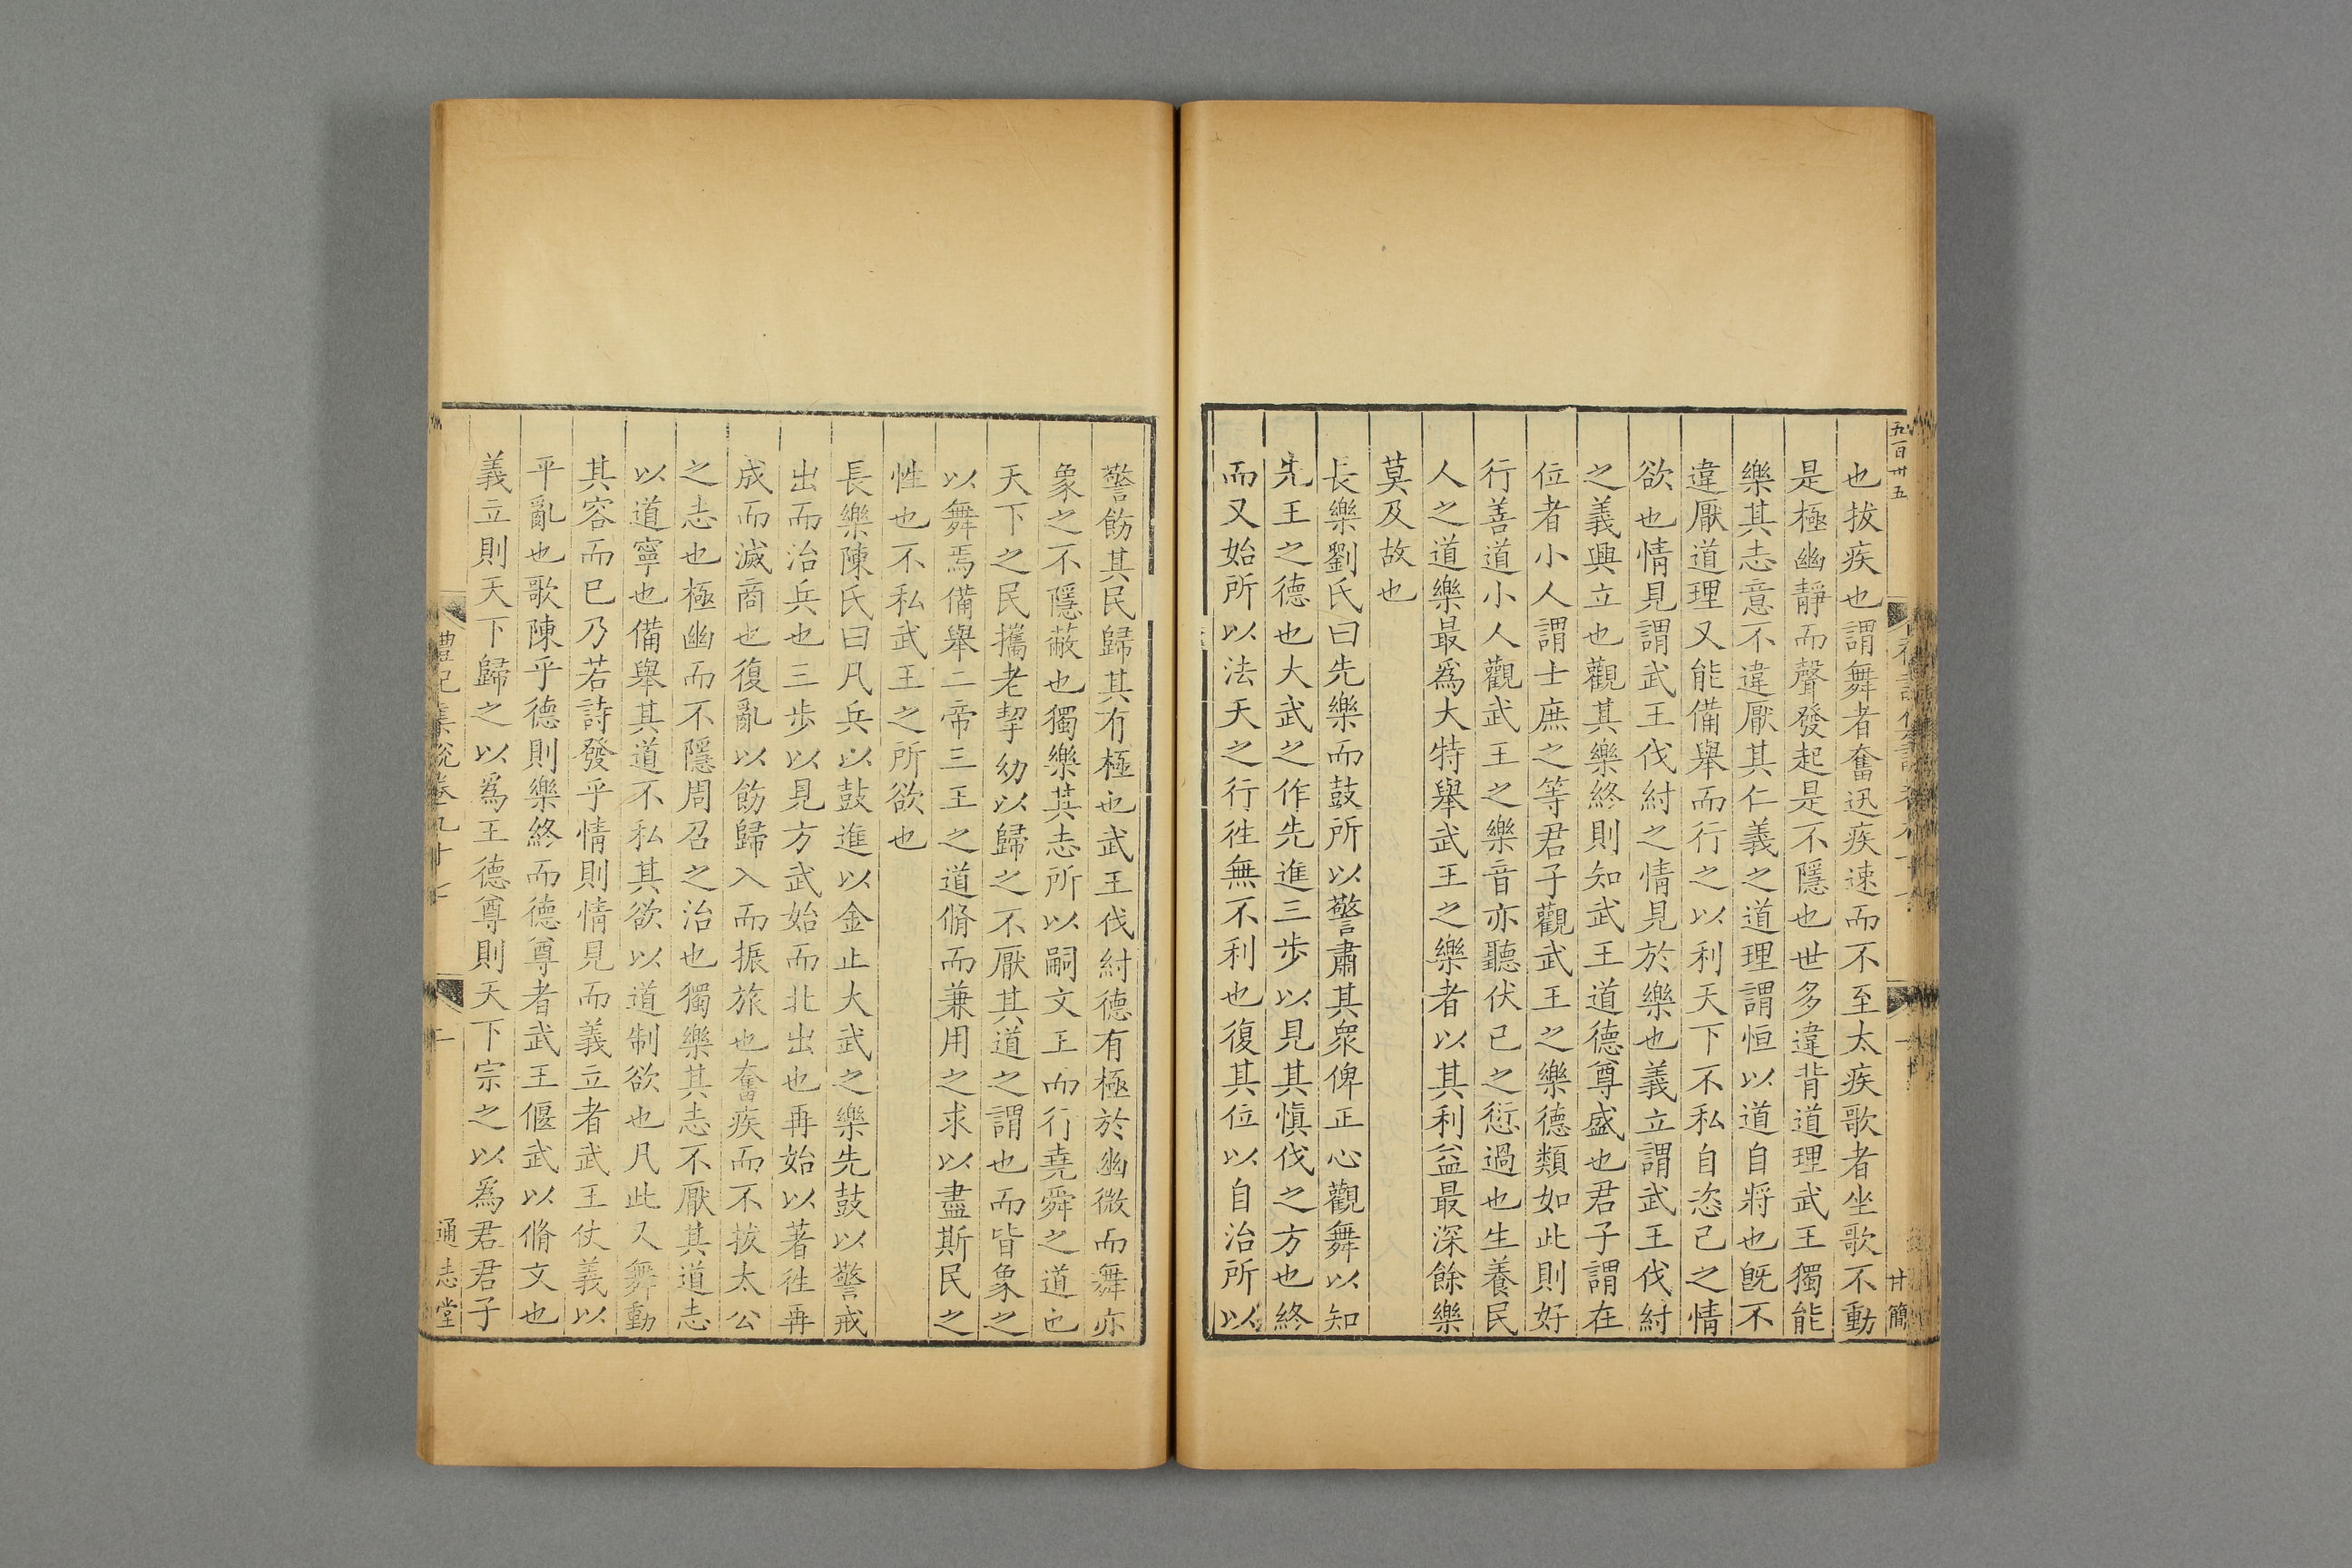 五百卅五
甘簡
也拔疾也謂舞者奮迅疾速而不至太疾歌者坐歌不動
是極幽靜而聲發起是不隱也世多違背道理武王獨能
樂其志意不違厭其仁義之道理謂恒以道自將也旣不
違厭道理又能備舉而行之以利天下不私自恣己之情
欲也情見謂武王伐紂之情見於樂也義立謂武王伐紂
之義興立也觀其樂終則知武王道德尊盛也君子謂在
位者小人謂士庶之等君子觀武王之樂德類如此則好
行善道小人觀武王之樂音亦聽伏己之愆過也生養民
人之道樂最爲大特舉武王之樂者以其利益最深餘樂
莫及故也
長樂劉氏曰先樂而鼓所以警肅其衆俾正心觀舞以知
先王之德也大武之作先進三步以見其愼伐之方也終
而又始所以法天之行徃無不利也復其位以自治所以
警飭其民歸其有極也武王伐紂德有極於幽微而舞亦
象之不隱蔽也獨樂其志所以嗣文王而行堯舜之道也
天下之民攜老挈幼以歸之不厭其道之謂也而皆象之
以舞焉備舉二帝三王之道脩而兼用之求以盡斯民之
性也不私武王之所欲也
長樂陳氏曰凡兵以鼓進以金止大武之樂先鼓以警戒
出而治兵也三步以見方武始而北出也再始以著徃再
成而滅商也復亂以飭歸入而振旅也奮疾而不拔太公
之志也極幽而不隱周召之治也獨樂其志不厭其道志
以道寧也備舉其道不私其欲以道制欲也凡此又舞動
其容而已乃若詩發乎情則情見而義立者武王仗義以
平亂也歌陳乎德則樂終而德尊者武王偃武以脩文也
義立則天下歸之以爲王德尊則天下宗之以爲君君子
禮記集說卷九十七
二
通志堂